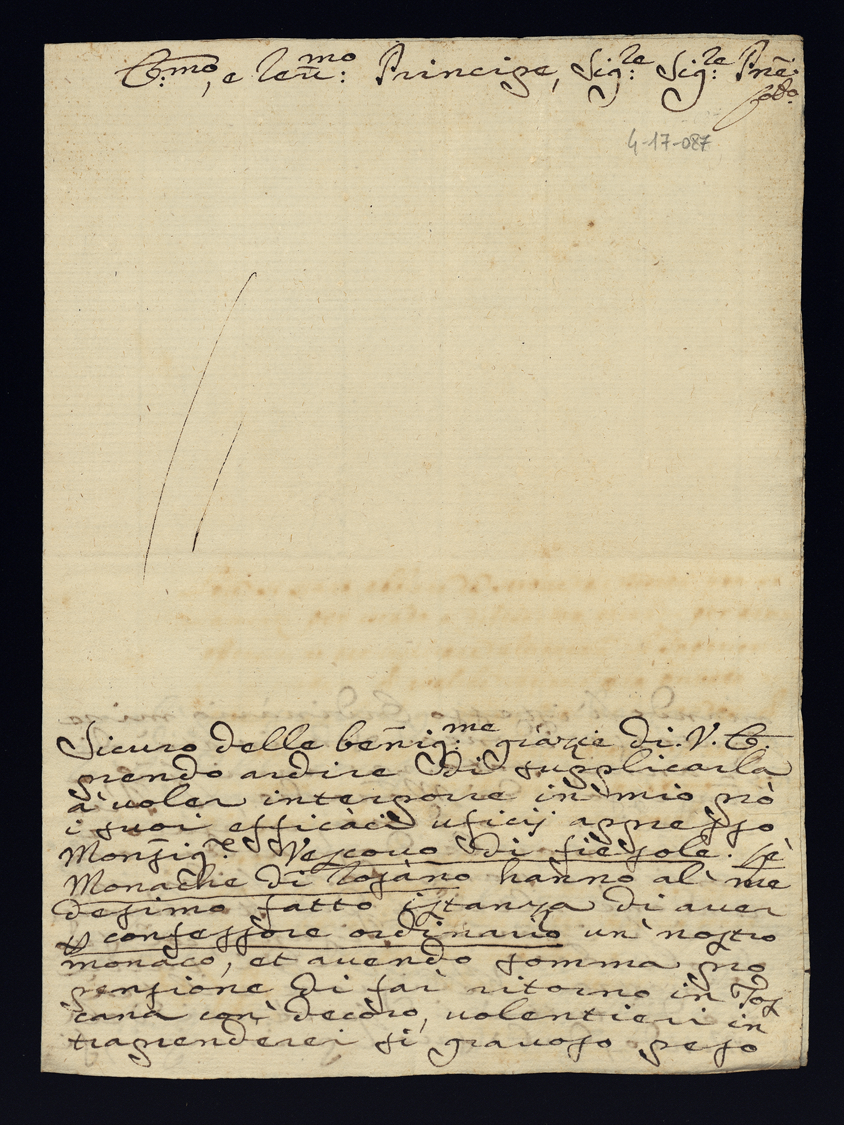 E.mo, e Reu.mo: Principe, Sig.re: Sig.re: Pñe:
4-17-087
Sicuro delle beñig.me: grazie di. V. E.
prendo ardire di supplicarla
à uoler interporre in mio prò
i suoi efficaci uficij appresso
Monsig.r: Vescouo di fiesole. Lè
Monache di Rosàno hanno al me
desimo fatto istanza di auer
confessore ordinario un nostro
monaco, et auendo somma pro
pensione di far ritorno in Tos
cana con decoro, uolentieri in
traprenderei si grauoso peso